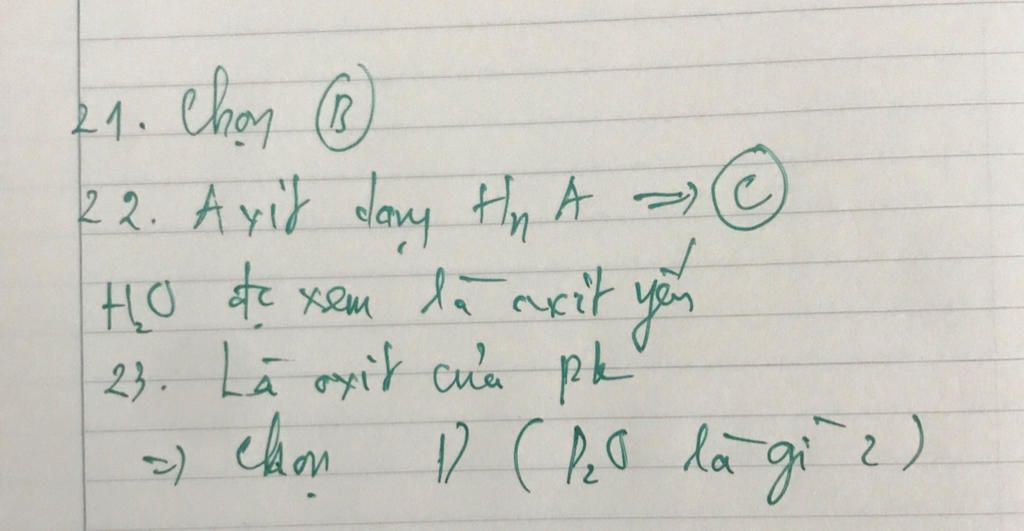 21. Chọn B
22. Axit dạng HnA => C
H₂O đc xem là axit yếu
23. Là oxit của pk
=> Chọn D (P₂O là gì ?)